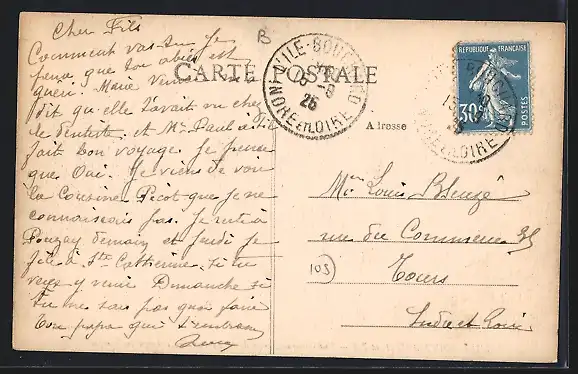 Cher Fils
Comment vas-tu je
pense que ton abcès est
guéri Marie
dit qu'elle t'avait vu chez
le dentiste et Mr Paul a-t-il
fait bon voyage. Je pense
que Oui. Je viens de voir
la Cousine Picot que je ne
connaissais pas. je reste à
Pouzay demain et jeudi je
à Ste Catherine. si tu
veux y venir Dimanche si
tu ne sais pas quoi faire
ton papa qui t'embrasse
B
CARTE POSTALE
L'ILE-BOUCHARD
25
INDRE ET LOIRE
REPUBLIQUE FRANÇAISE
30c
POSTES
Adresse
Mr Louis
rue du Commerce 35
Tours
Indre et Loire
103